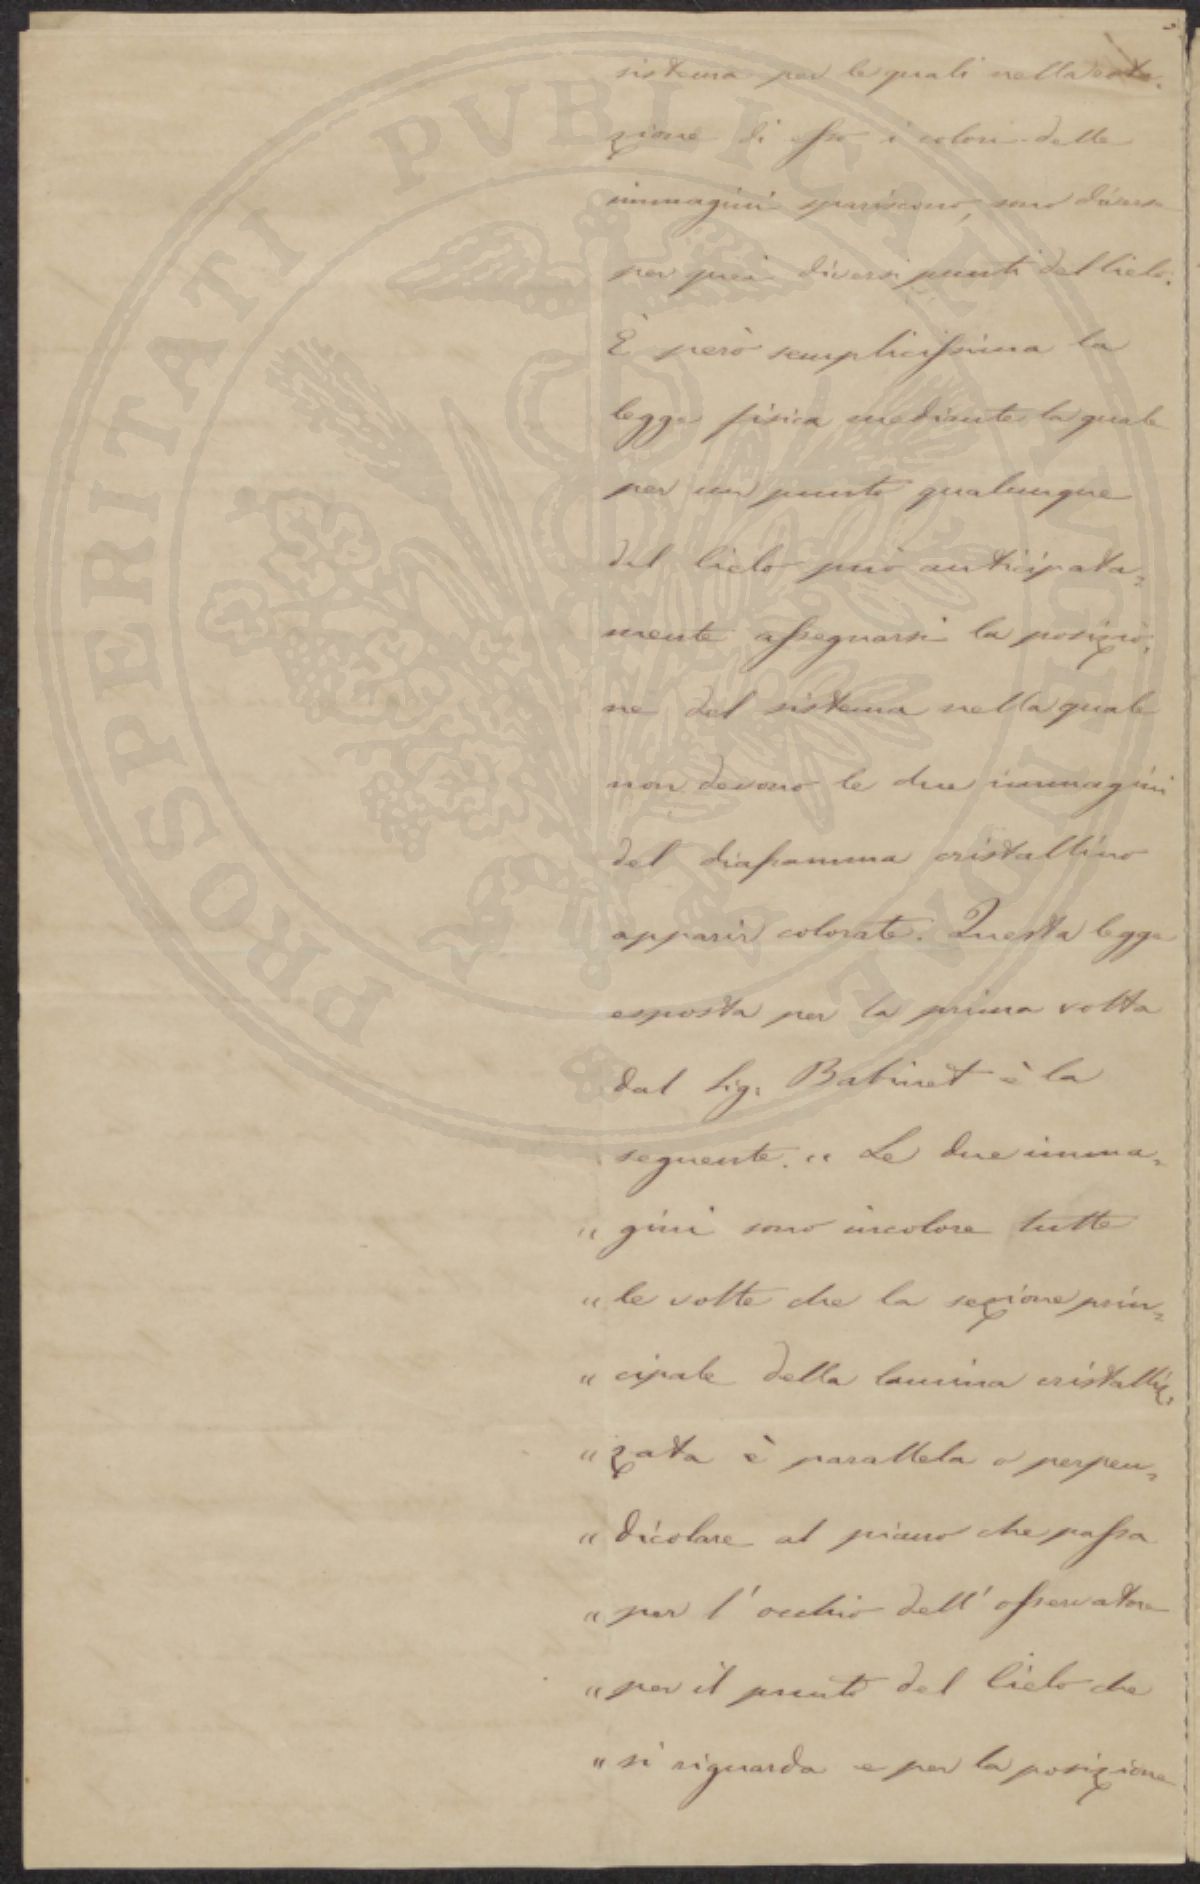 sistema per le quali nella rota=
zione di esso i colori delle
immagini spariscono, sono diverse
per quei diversi punti del Cielo.
È però semplicissima la
legge fisica mediante la quale
per un punto qualunque
del Cielo può anticipata=
mente assegnarsi la posizio=
ne del sistema nella quale
non devono le due immagini
del diaframma cristallino
apparir colorate. Questa legge
esposta per la prima volta
dal Sig. Babinet è la
seguente. „ Le due imma=
„ gini sono incolore tutte
„ le volte che la sezione prin=
„ cipale della lamina cristalliz=
„ zata è parallela o perpen=
„ dicolare al piano che passa
„ per l'occhio dell'osservatore
„ per il punto del Cielo che
„ si riguarda e per la posizione
PROSPERITATI PVBLICAE AVGENDAE